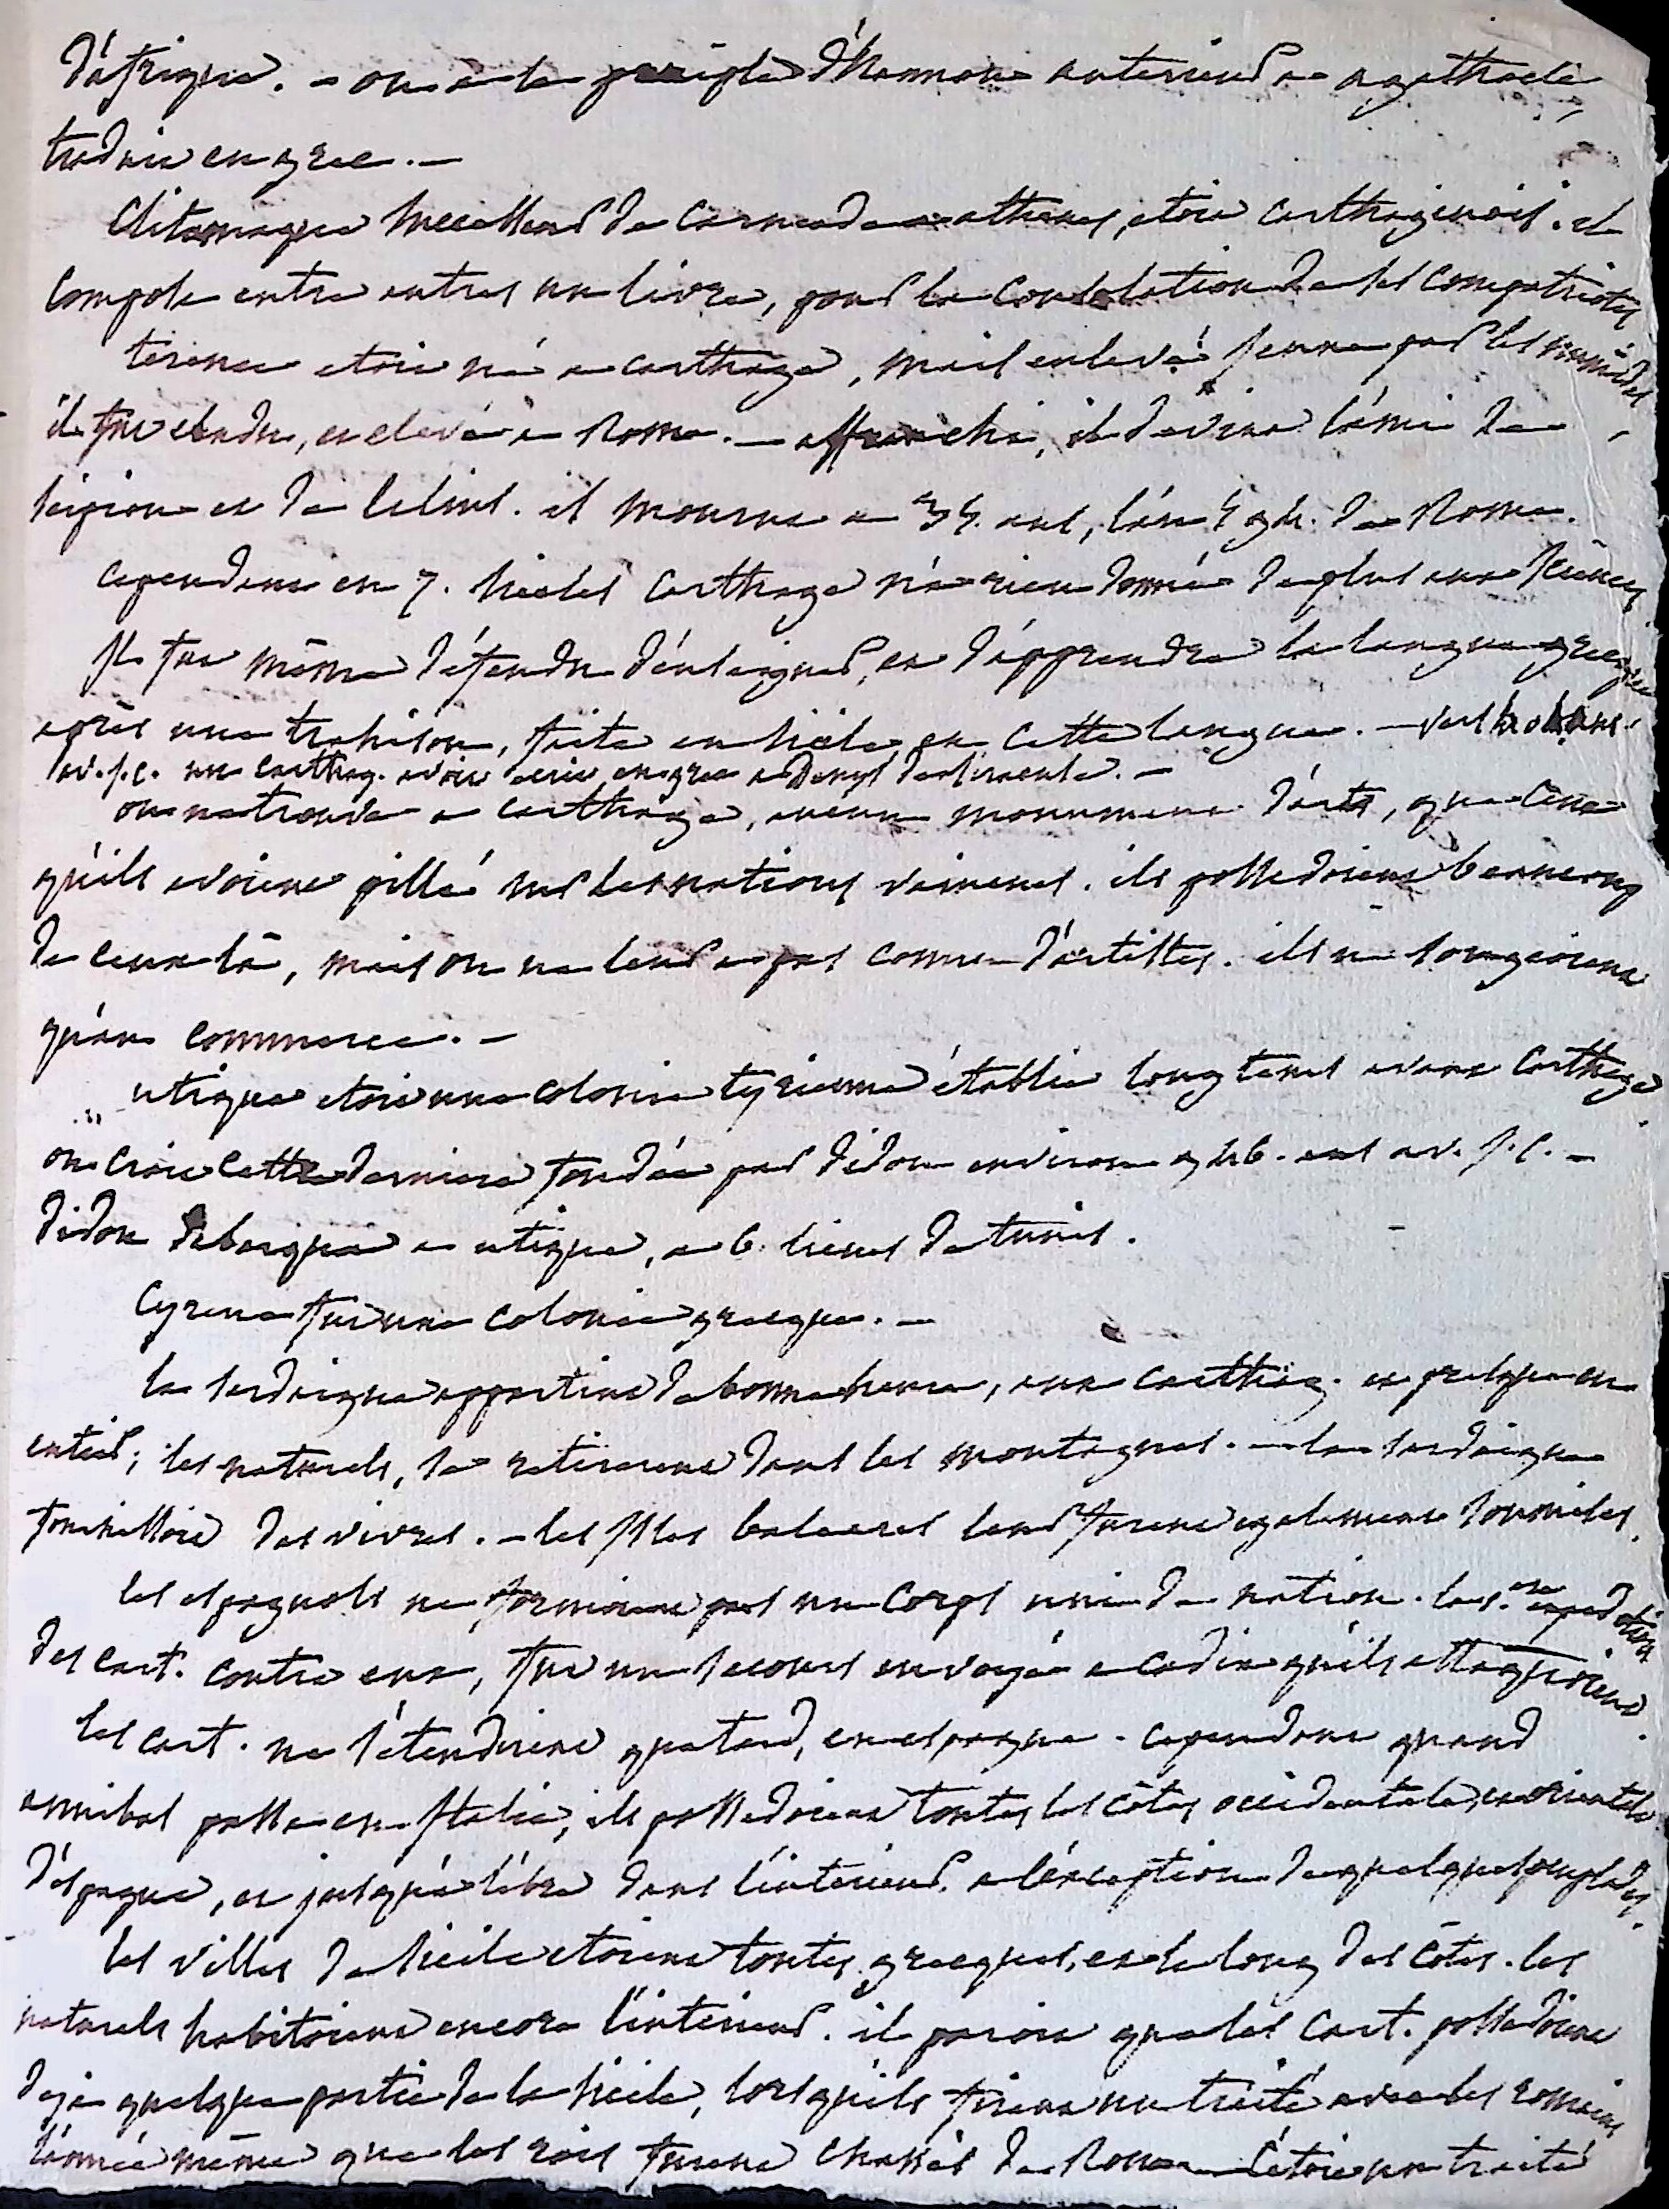 d'afrique. - on a le periple d'hannon anterieur a agathocle
traduit en grec. -
Clitomaque successeur de Carneade a athenes, etoit Carthaginois. il
composa entre autres un livre, pour la Consolation de ses compatriotes
terence etoit né a carthage, mais enlevé jeune par les numides
il fut vendu, et elevé a Rome. - affranchi, il devint l'ami de
scipion et de lelius. il mourut a 35. ans, l'an de Rome.
cependant en 7. siecles Carthage n'a rien donné de plus aux sciences
Il fut même défendu d'enseigner, et d'apprendre la langue grecque
après une trahison, faite en sicile en cette langue. - vers
av. j. c. un carthag. avoit ecrit en grec a Denys de siracuse. -
on ne trouve a carthage, aucun monument d'arts, que ceux
qu'ils avoient pillé sur les nations vaincues. ils possedoient beaucoup
de ceux là, mais on ne leur a pas connu d'artistes. ils ne songeoient
qu'au commerce. -
utique etoit une colonie tyrienne établie long tems avant Carthage
on croit cette derniere fondée par didon environ ans av. j. c. -
didon debarqua a utique, a 6. lieues de tunis.
Cyrene fut une colonie grecque. -
la sardaigne appartint de bonne heure, aux carthag. et presque en
entier; les naturels, se retirerent dans les montagnes. - la sardaigne
fournissoit des vivres. - les Isles baleares leur furent egalement soumises.
les espagnols ne formoient pas un corps uni de nation. la 1ere expedition
des cart. contre eux, fut un secours envoyé a cadix qu'ils attaquoient.
les cart. ne s'etendirent que tard, en espagne. cependant quand
annibal passa en Italie, ils possedoient toutes les côtes occidentale, et orientale
d'espagne, et jusqu'a l'ebre dans l'interieur, a l'exception de quelques peuplades.
les villes de sicile etoient toutes grecques, et le long des côtes. les
naturels habitoient encore l'interieur. il paroit que les Cart. possedoient
deja quelque partie de la sicile, lorsqu'ils firent un traité avec les romains
l'année même que les rois furent chassés de Rome. c'etoit un traité